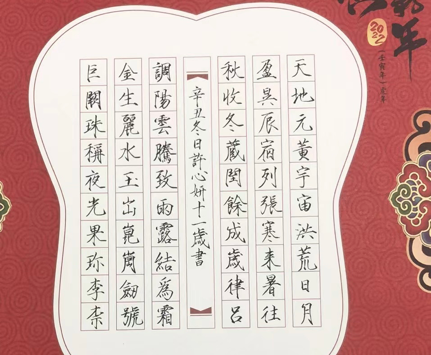 年
2022
天地元黃宇宙洪荒日月
盈昃辰宿列張寒来暑往
秋收冬藏閏餘成歲律吕
辛丑冬日許心妍十一歲書
調陽雲騰致雨露結爲霜
金生麗水玉出崑崗劒號
巨闕珠稱夜光果珎李柰